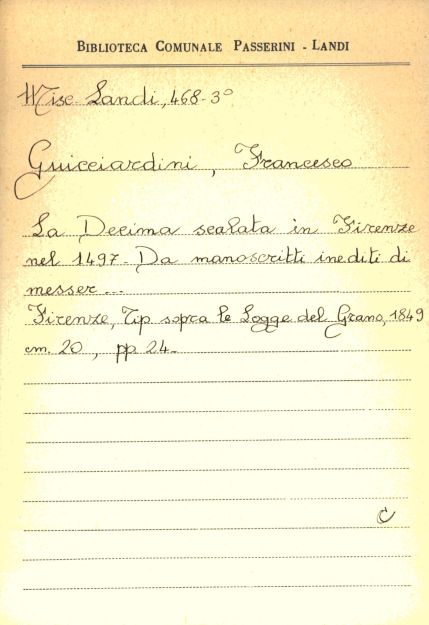 BIBLIOTECA COMUNALE PASSERINI - LANDI
Misc Landi, 468-3°
Guicciardini, Francesco
La Decima scalata in Firenze
nel 1497. Da manoscritti inediti di
messer...
Firenze, Tip sopra le Logge del Grano, 1849
cm. 20, pp 24.
C